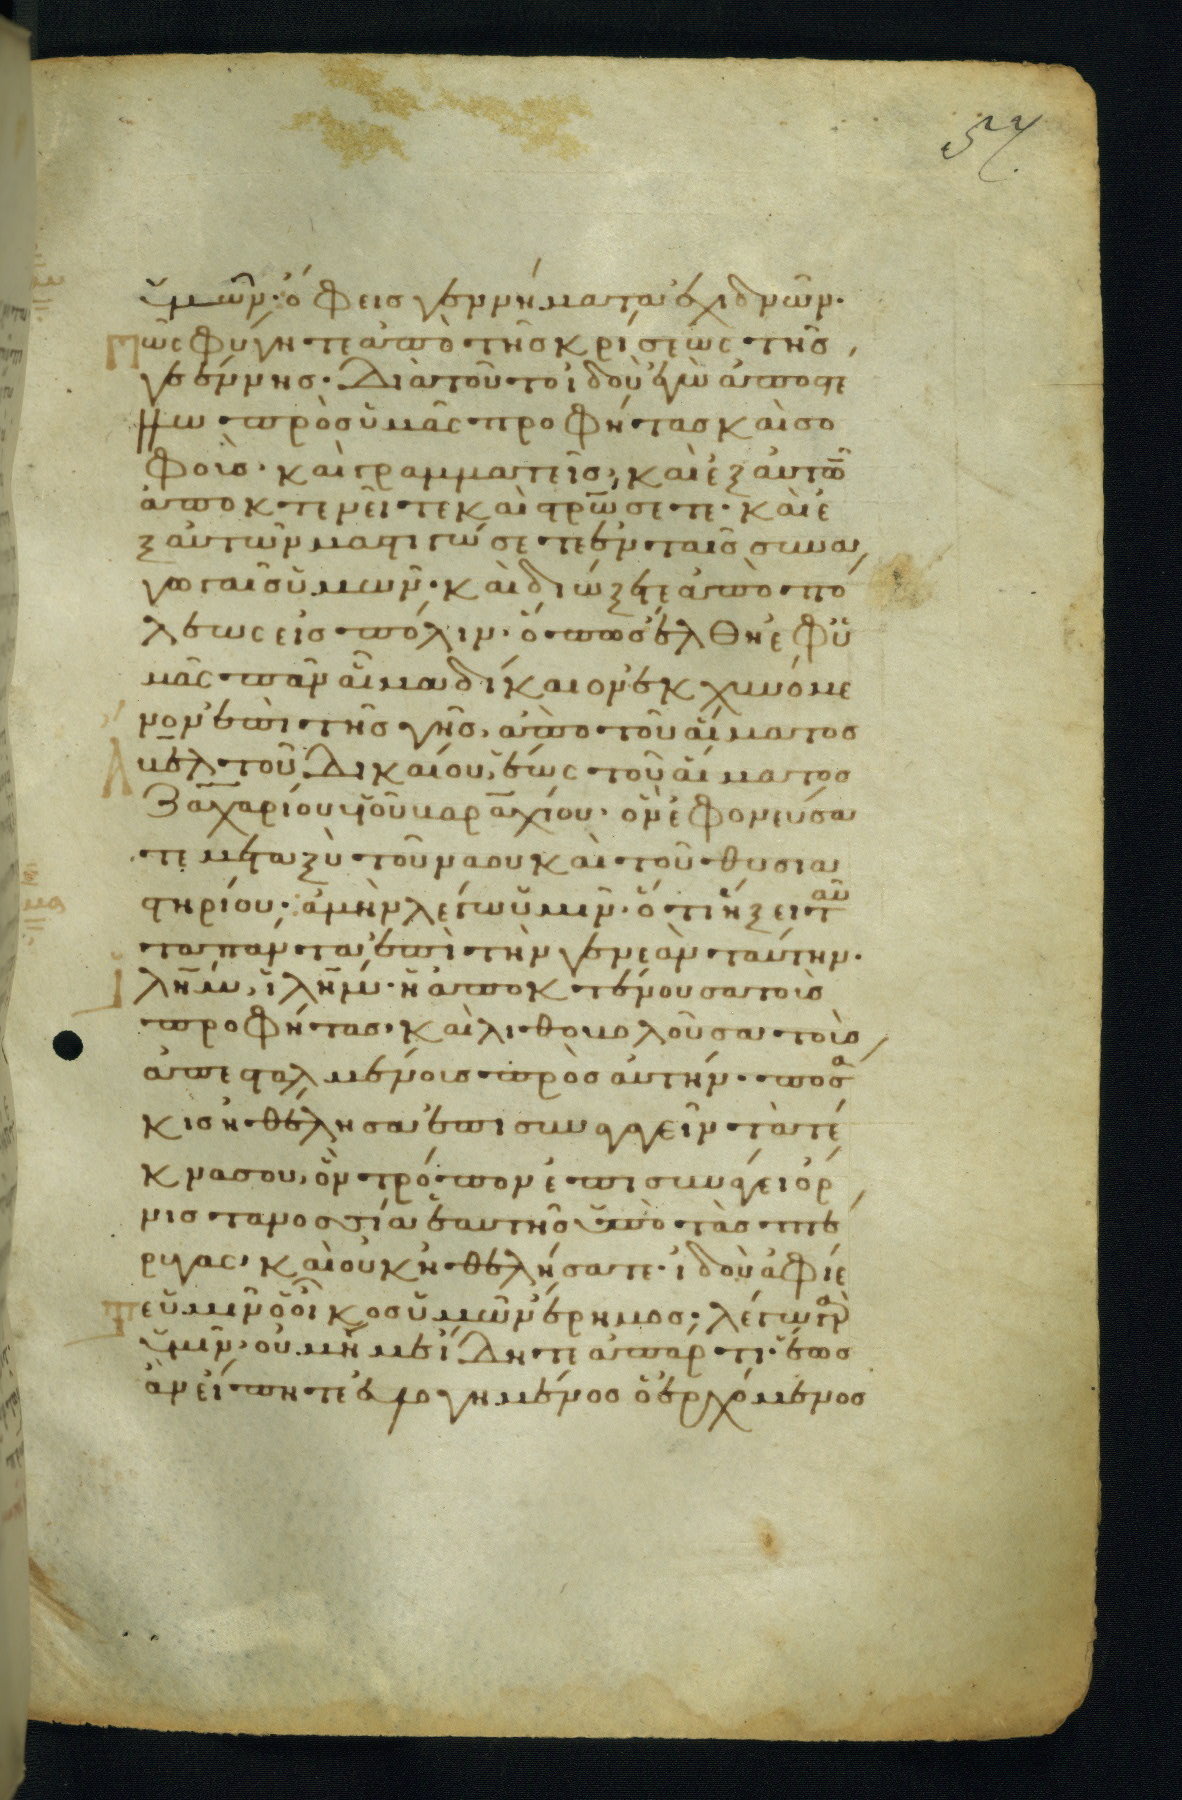 57
ὑμῶν· ὄφεις γεννήματα ἐχιδνῶν·
Πῶς φύγητε ἀπὸ τῆς κρίσεως τῆς
γεέννης· Διὰ τοῦτο ἰδοὺ ἐγὼ ἀποστέ
λλω πρὸς ὑμᾶς προφήτας καὶ σο
φοὺς· καὶ γραμματεῖς, καὶ ἐξ αὐτῶν
ἀποκτενεῖτε καὶ στρώσετε· καὶ ἐ
ξ αὐτῶν μαστιγώσετε ἐν ταῖς συνα
γωγαῖς ὑμῶν· καὶ διώξετε ἀπὸ πό
λεως εἰς πόλιν· ὅπως ἔλθη ἐφ ὑ
μᾶς πᾶν αἷμα δίκαιον ἐκχυνόμε
νον ἐπὶ τῆς γῆς, ἀπὸ τοῦ αἵματος
Ἄμελ τοῦ Δικαίου, ἕως τοῦ αἵματος
Ζαχαρίου υἱοῦ μαραχίου· ὃν ἐφονεύσα
τε μεταξὺ τοῦ ναου καὶ τοῦ θυσια
στηρίου· ἀμὴν λέγω ὑμῖν· ὅτι ἥξει ταῦ
τα πάντα ἐπὶ τὴν γενεὰν ταύτην·
Ἰλῆμ, ἰλῆμ· ἡ ἀποκτένουσα τοὺς
προφήτας· καὶ λιθομολοῦσα τοὺς
ἀπεσταλμένους πρὸς αὐτήν· ποσά
κις ἠθέλησα ἐπισυναγαγεῖν τὰ τέ
κνα σου, ὃν τρόπον ἐπισυνάγει ὄρ
νις τα νοσσία ἑαυτῆς ὑπὸ τὰς πτέ
ρυγας· καὶ οὐκ ἠθελήσατε· ἰδοὺ ἀφίε
ται ὑμῖν ὁ οἶκος ὑμῶν ἔρημος· λέγω γὰρ
ὑμῖν· οὐ μή με ἴδητε ἀπ ἄρτι· ἕως
ἂν εἴπητε εὐλογημένος ὁ ἐρχόμενος